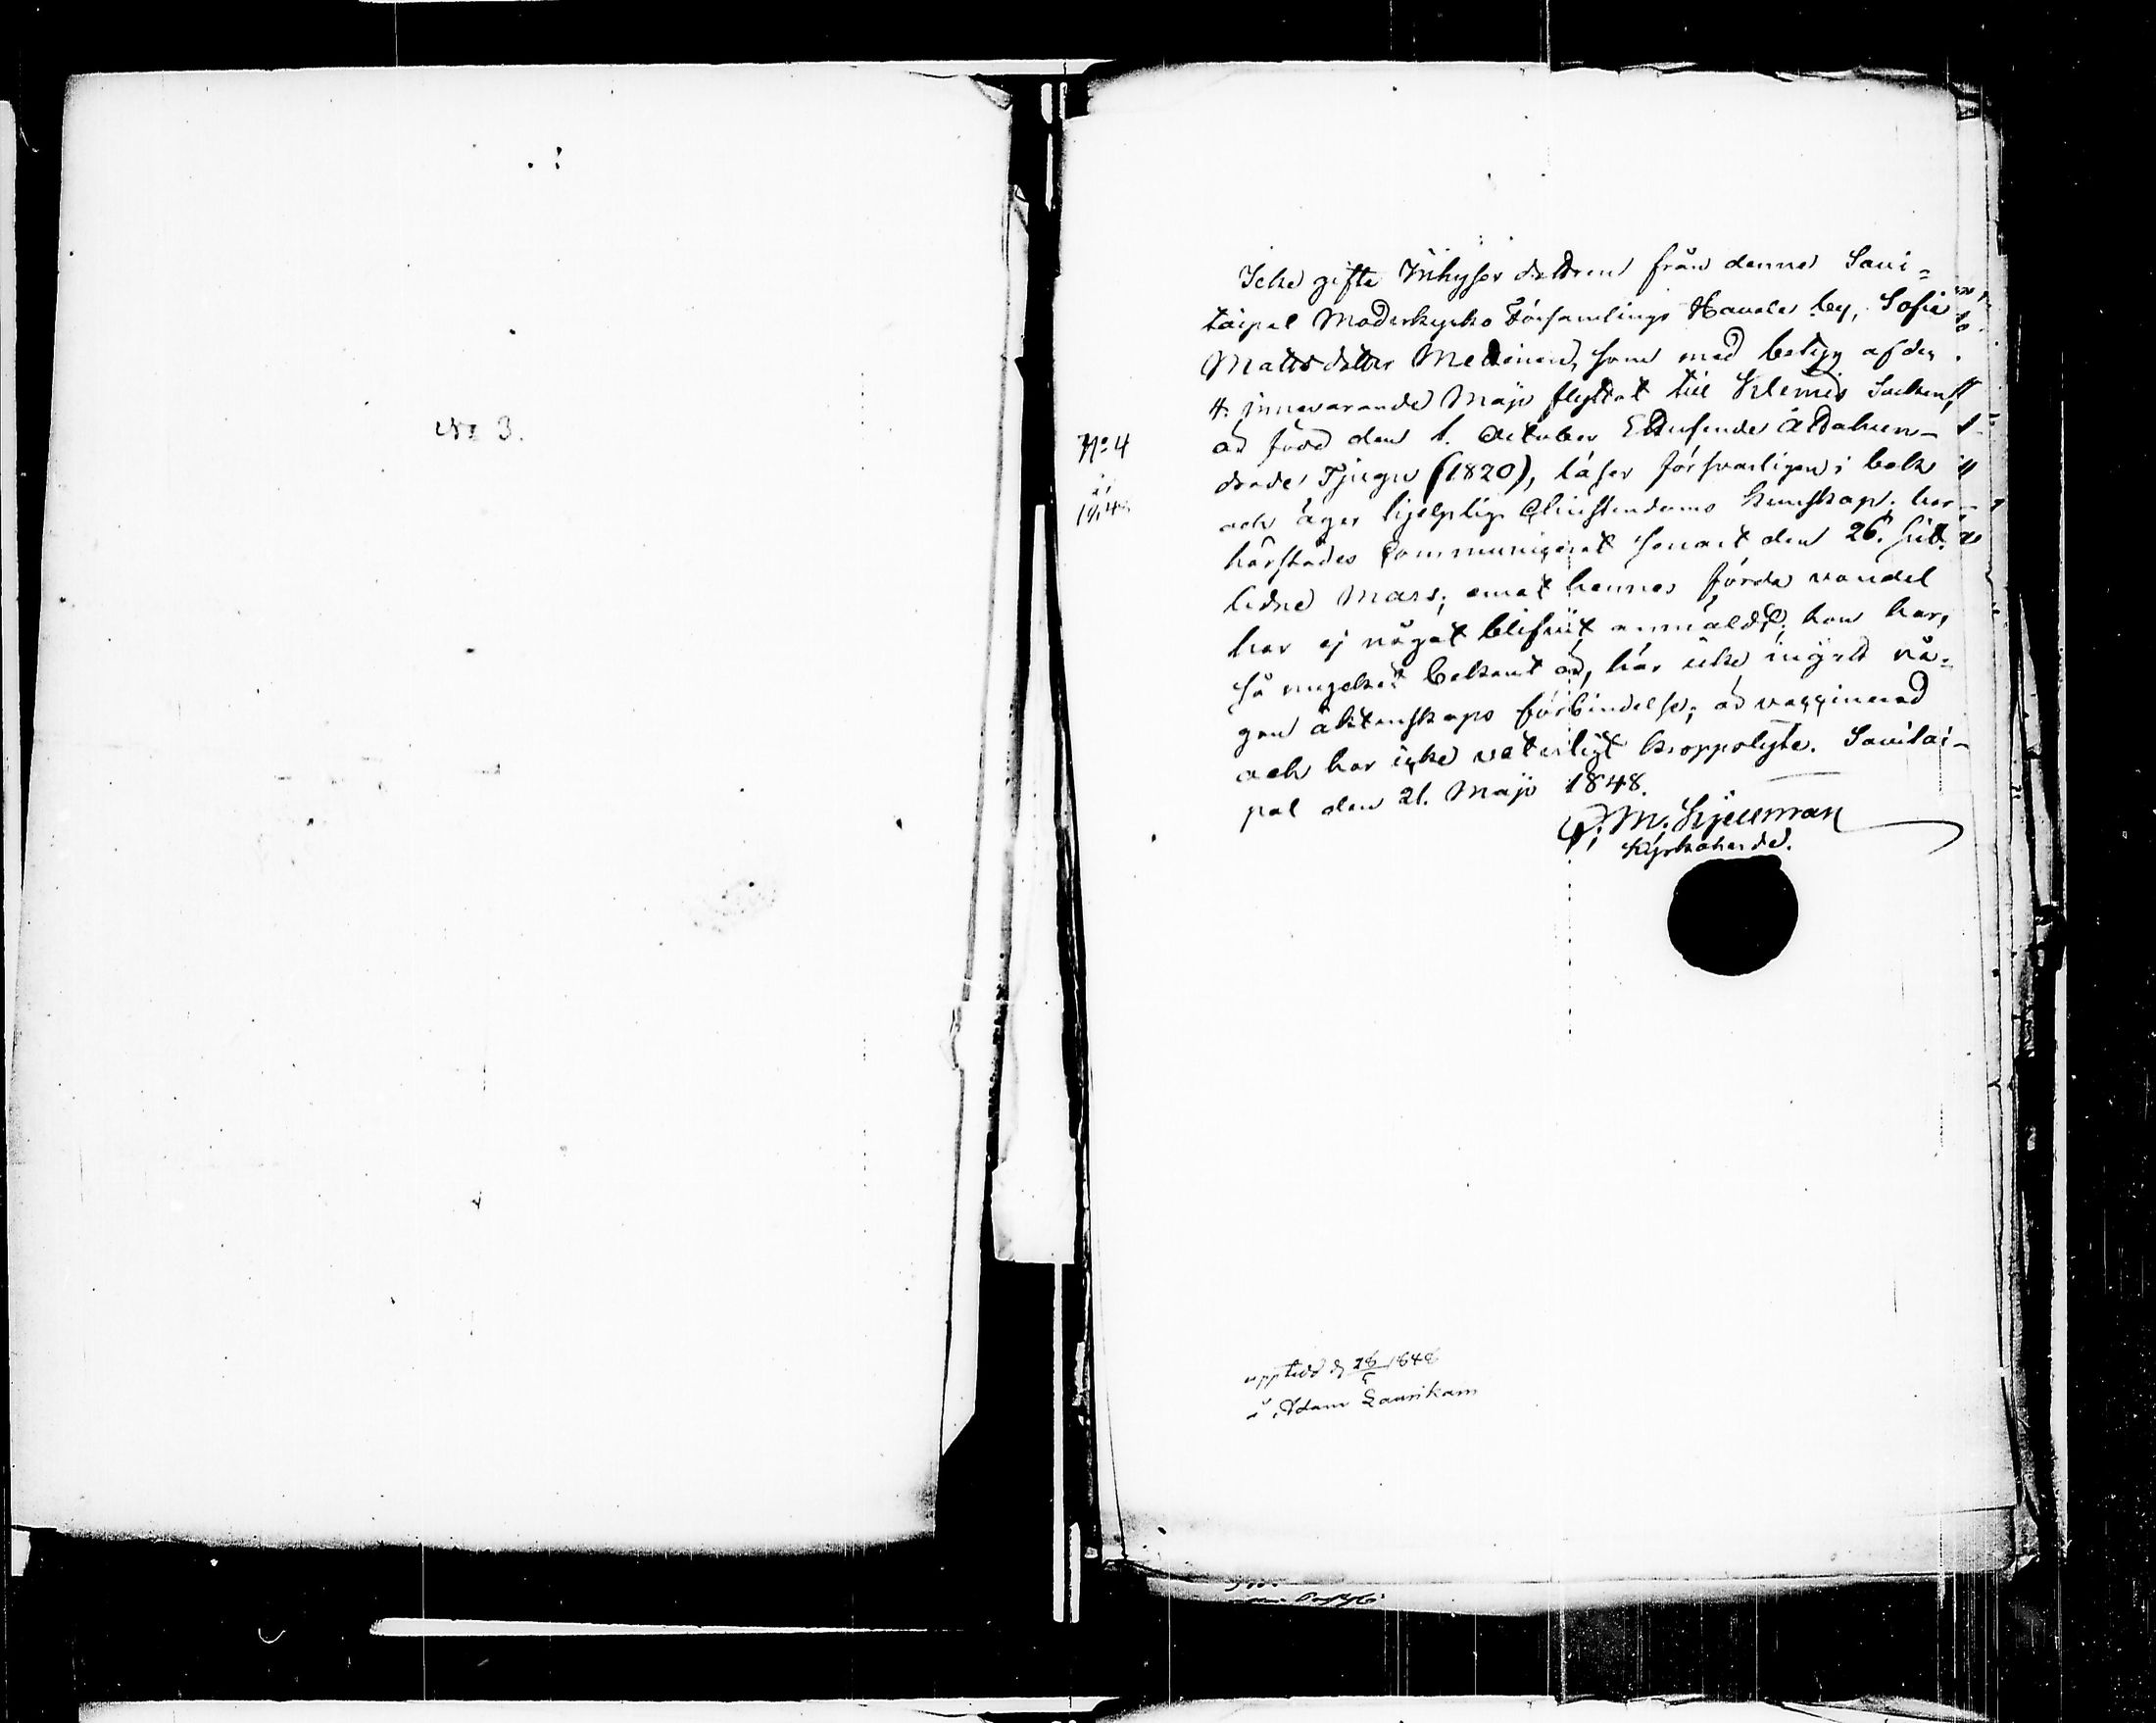 No 3.
No 4
Icke gifte Inhyses dottren från denne Savi=
taipal Moderkyrko Församlings Havala by, Sofia
Mattsdotter Mellinen, som med betyg af den
4. innevarande Majo flyttat till Klemis Socken,
är född den 1. October Ettusende åttahun-
drade Tjugu (1820), läser försvarligen i bok
och äger hjelplig Christendoms kunskap, har
härstädes communicerat senast den 26. sist-
ledne Mars; emot hennes förda vandel
har ej något blifvit anmäldt; hon har,
så mycket bekant är, här icke ingått nå-
gon äktenskaps förbindelse; är vaccinerad
och har icke veterligt kroppslyte. Savitai-
pal den 21. Majo 1848.
M. Kjellman
Kyrkoherde.
upptedd d 28/5 1848
Adam Laurikain